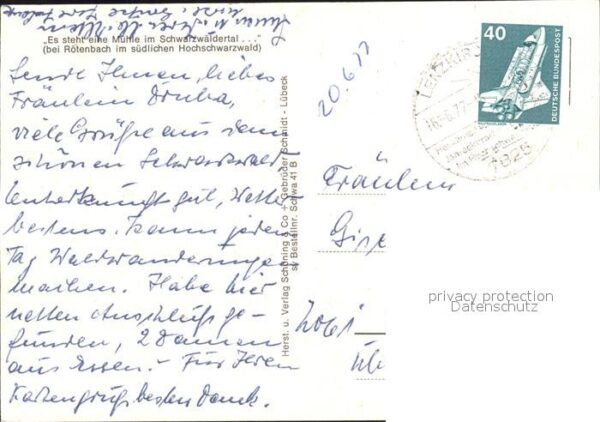 "Es steht eine Mühle im Schwarzwäldertal . . ."
(bei Rötenbach im südlichen Hochschwarzwald)
Sende Ihnen, liebes
Fräulein
viele Grüße aus dem
schönen Schwarzwald.
Unterkunft gut, Wetter
bestens. Kann jeden
Tag Waldwanderungen
machen. Habe hier
netten Anschluß ge-
funden, 2 Damen
aus Essen. - Für Ihren
Kartengruß besten Dank.
Herst. u. Verlag Schöning & Co + Gebrüder Schmidt - Lübeck
sv Bestellnr. Schwa 41 B
20.6.77
40
DEUTSCHE BUNDESPOST
16.-6.77
7825
Fräulein
Gise
privacy protection
Datenschutz